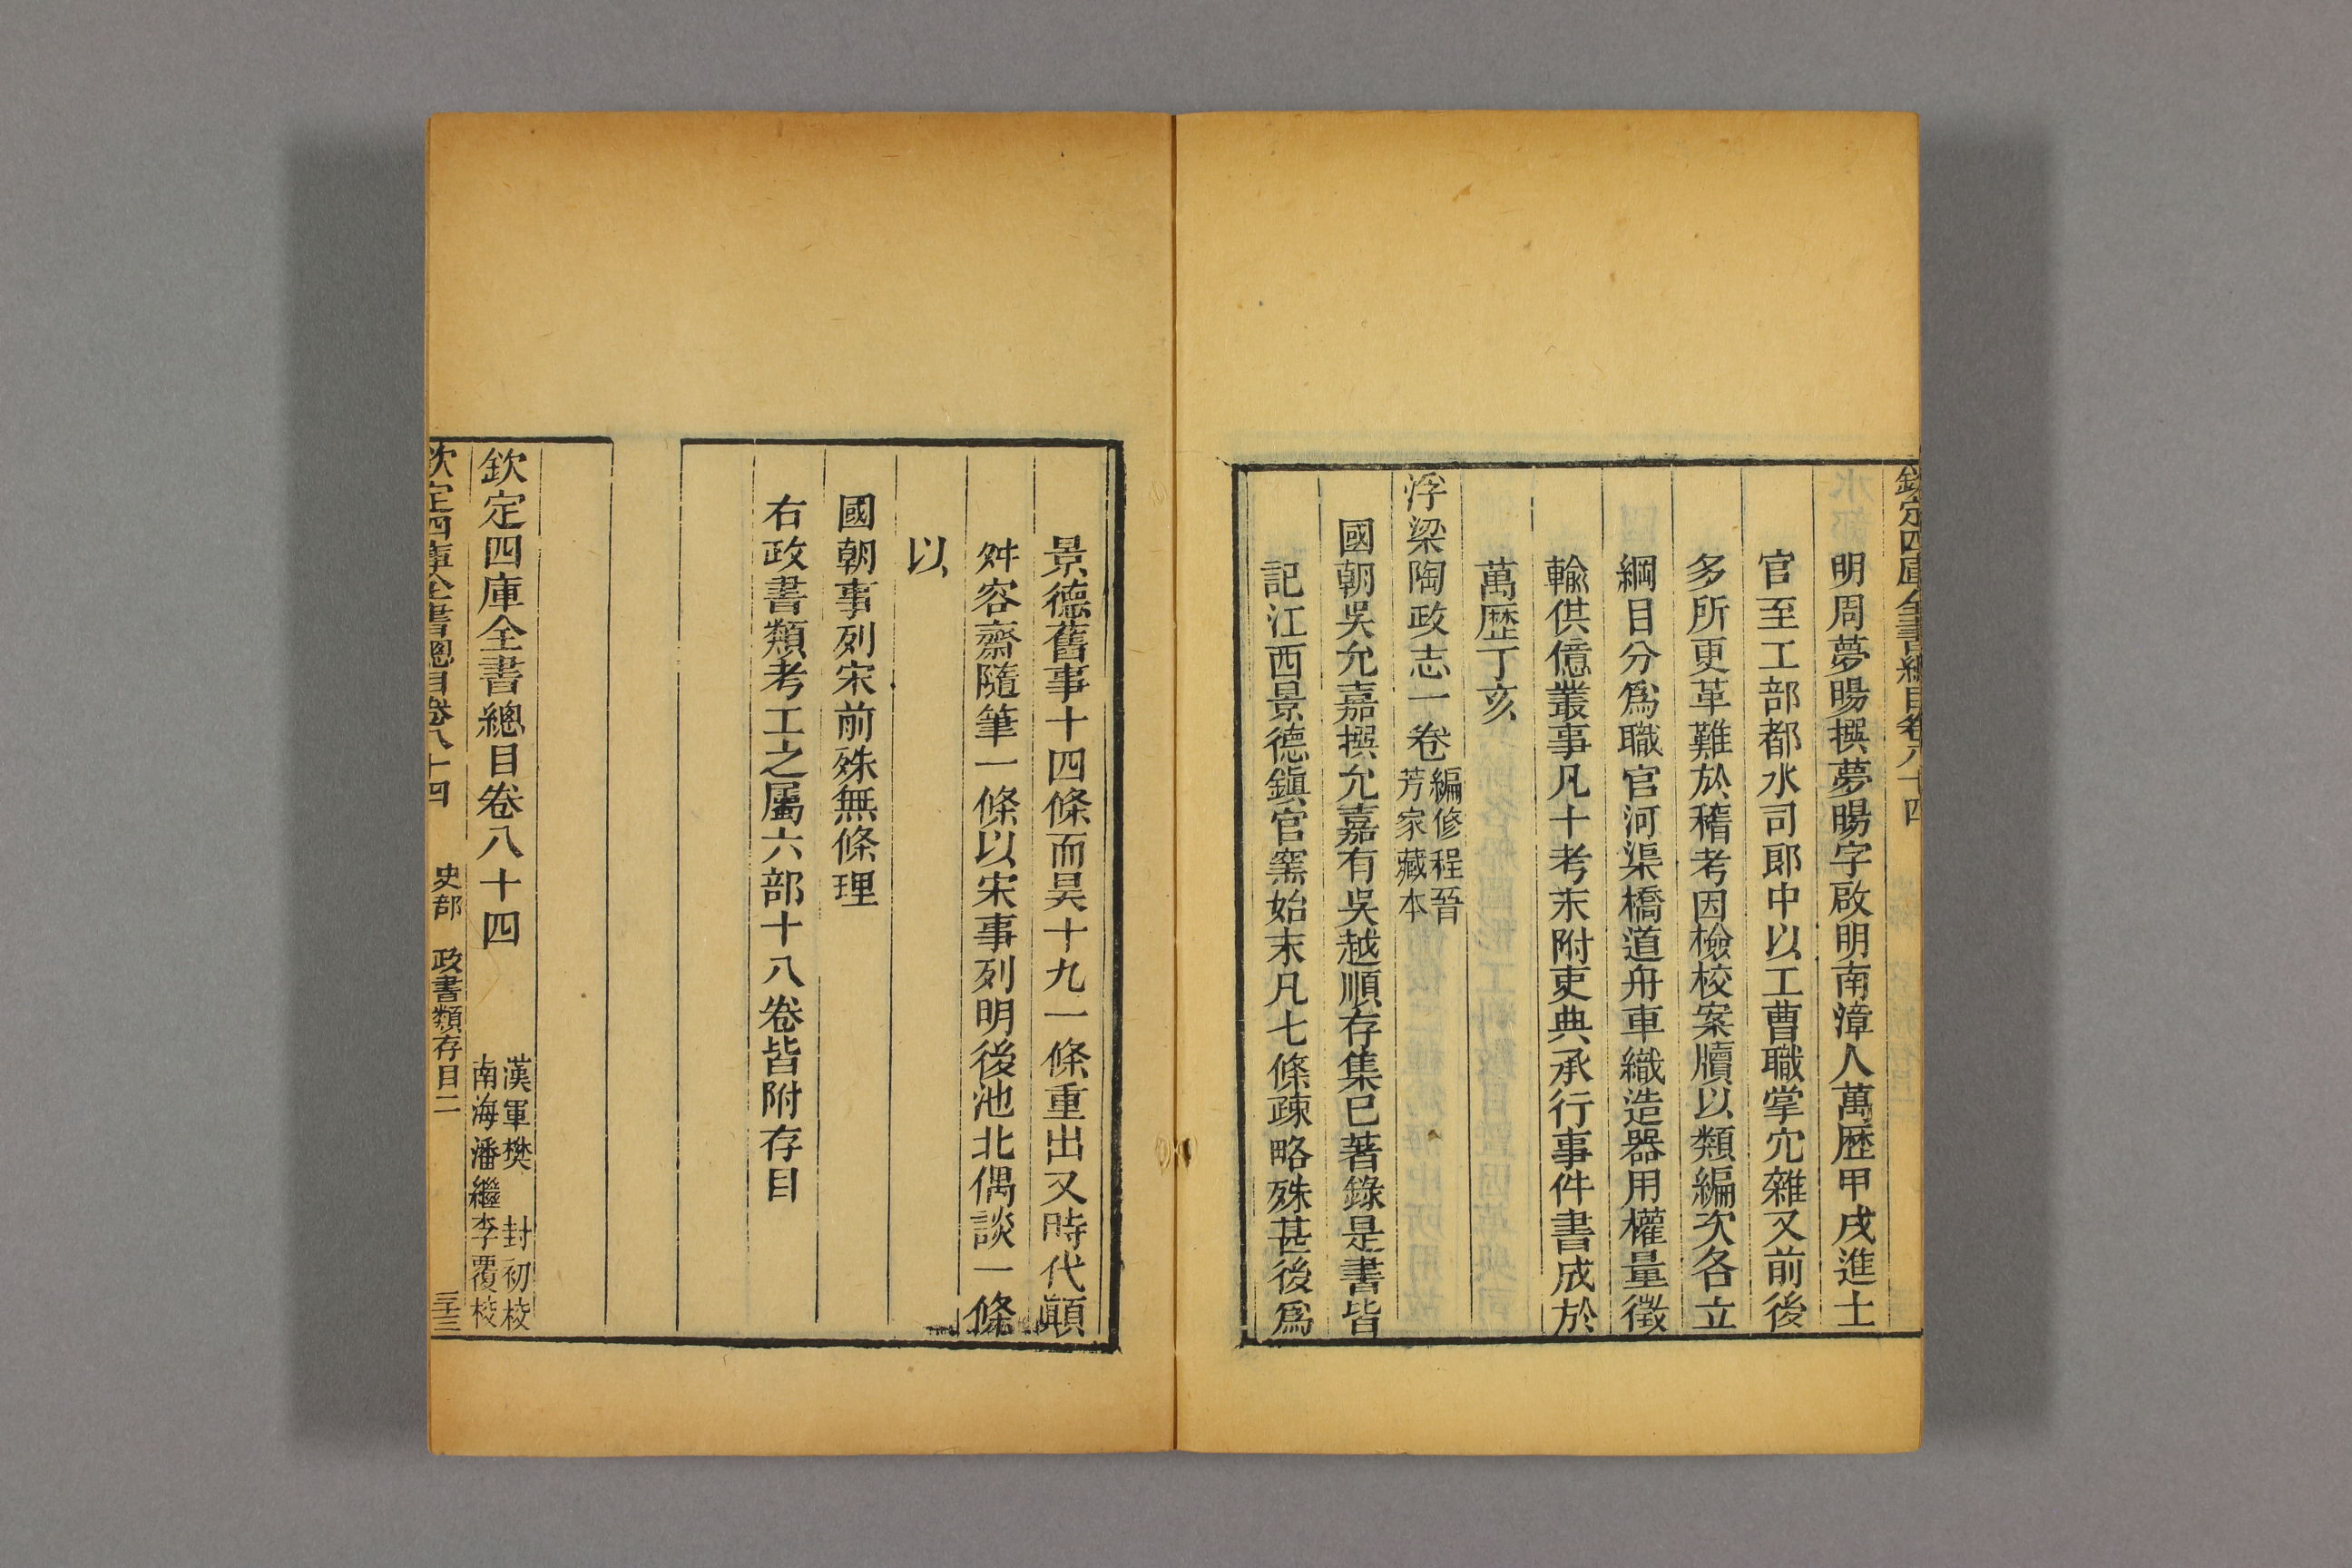 欽定四庫全書總目卷八十四
明周夢暘撰夢暘字啟明南漳人萬歷甲戌進士
官至工部都水司郎中以工曹職掌宂雜又前後
多所更革難於稽考因檢校案牘以類編次各立
綱目分爲職官河渠橋道舟車織造器用權量徵
輸供億叢事凡十考末附吏典承行事件書成於
萬歷丁亥
浮梁陶政志一卷編修程晉芳家藏本
國朝吳允嘉撰允嘉有吳越順存集已著錄是書皆
記江西景德鎭官窯始末凡七條疎略殊甚後爲
景德舊事十四條而昊十九一條重出又時代顚
舛容齋隨筆一條以宋事列明後池北偶談一條
以
國朝事列宋前殊無條理
右政書類考工之屬六部十八卷皆附存目
欽定四庫全書總目卷八十四
漢軍樊 封初校
南海潘繼李覆校
欽定四庫全書總目卷八十四 史部 政書類存目二 三十三